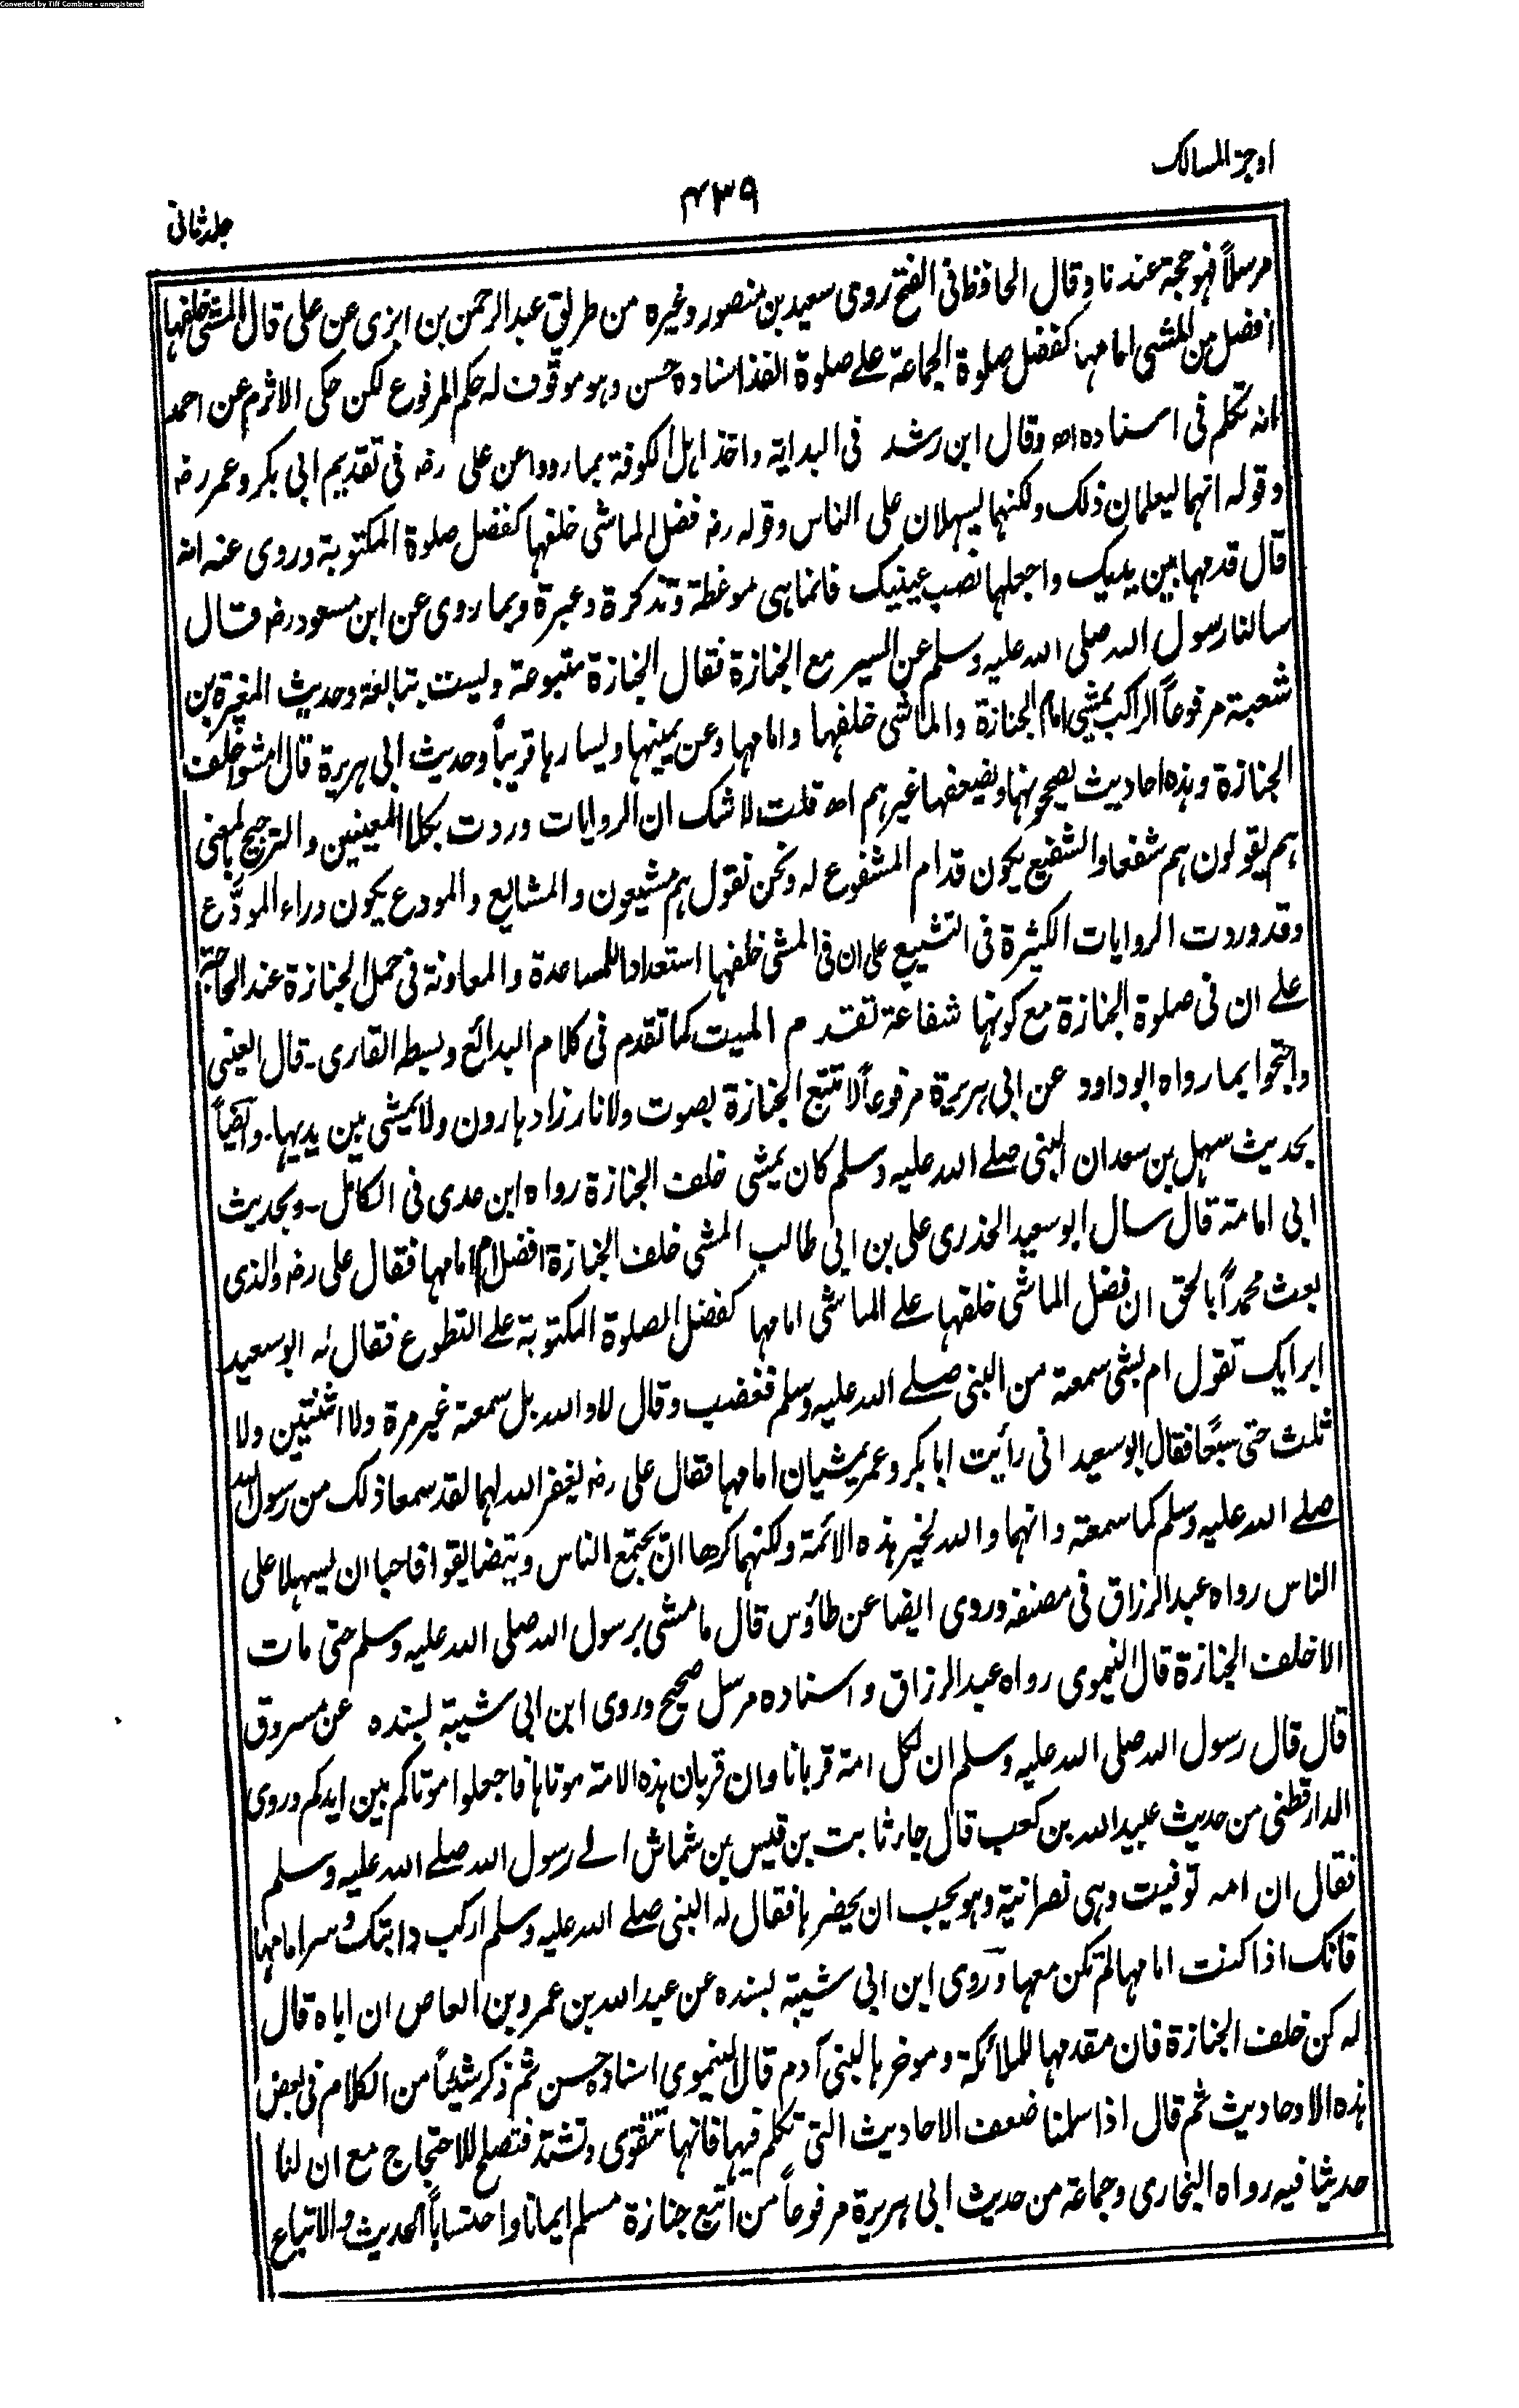 Converted by Tiff Combine - unregistered
اوجز المسالک
۴۳۹
جلد ثانی
مرسلاً فهو حجة عندنا وقال الحافظ فی الفتح روی سعید بن منصور وغیره من طریق عبد الرحمن بن ابزی عن علی قال المشی خلفها
افضل من المشی امامها کفضل صلوة الجماعة علی صلوة الفذ اسناده حسن وهو موقوف له حکم المرفوع لکن حکی الاثرم عن احمد
انه تکلم فی اسناده اھ وقال ابن رشد فی البدایة واخذ اهل الکوفة بما رووا عن علی رضہ فی تقدیم ابی بکر وعمر رضہ
وقوله انهما لیعلمان ذلک ولکنهما یسهلان علی الناس وقوله رضہ فضل الماشی خلفها کفضل صلوة المکتوبة وروی عنه انه
قال قدمها بین یدیک واجعلها نصب عینیک فانما هی موعظة وتذکرة وعبرة وبما روی عن ابن مسعود رضہ قال
سالنا رسول الله صلی الله علیه وسلم عن السیر مع الجنازة فقال الجنازة متبوعة ولیست بتابعة وحدیث المغیرة بن
شعبة مرفوعاً الراکب یمشی امام الجنازة والماشی خلفها وامامها وعن یمینها ویسارها قریباً وحدیث ابی هریرة قال امشوا خلف
الجنازة وهذه احادیث یصححونها ویضعفها غیرهم اھ قلت لا شک ان الروایات وردت بکلا المعنیین والترجیح بالمعنی
هم یقولون هم شفعاء والشفیع یکون قدام المشفوع له ونحن نقول هم مشیعون والمشایع والمودع یکون وراء المودَّع
وقد وردت الروایات الکثیرة فی التشییع علی ان فی المشی خلفها استعدادا للمساعدة والمعاونة فی حمل الجنازة عند الحاجة
علی ان فی صلوة الجنازة مع کونها شفاعة تقدم المیت کما تقدم فی کلام البدائع وبسطه القاری۔ قال العینی
واحتجوا بما رواه ابو داود عن ابی هریرة مرفوعاً لا تتبع الجنازة بصوت ولا نار زاد هارون ولا یمشی بین یدیها۔ وایضاً
بحدیث سهل بن سعد ان النبی صلی الله علیه وسلم کان یمشی خلف الجنازة رواه ابن عدی فی الکامل۔ وبحدیث
ابی امامة قال سال ابو سعید الخدری علی بن ابی طالب المشی خلف الجنازة افضل ام امامها فقال علی رضہ والذی
بعث محمداً بالحق ان فضل الماشی خلفها علی الماشی امامها کفضل الصلوة المکتوبة علی التطوع فقال له ابو سعید
ابرایک تقول ام بشی سمعته من النبی صلی الله علیه وسلم فغضب وقال لا والله بل سمعته غیر مرة ولا اثنتین ولا
ثلث حتی سبعًا فقال ابو سعید انی رأیت ابا بکر وعمر یمشیان امامها فقال علی رضہ یغفر الله لهما لقد سمعا ذلک من رسول الله
صلی الله علیه وسلم کما سمعته وانهما والله لخیر هذه الائمة ولکنهما کرها ان یجتمع الناس ویتضایقوا فاحبا ان یسهلا علی
الناس رواه عبد الرزاق فی مصنفه وروی ایضا عن طاؤس قال ما مشی رسول الله صلی الله علیه وسلم حتی مات
الا خلف الجنازة قال النیموی رواه عبد الرزاق واسناده مرسل صحیح وروی ابن ابی شیبة بسنده عن مسروق
قال قال رسول الله صلی الله علیه وسلم ان لکل امة قربانا وان قربان هذه الامة موتاها فاجعلوا موتاکم بین ایدیکم وروی
الدارقطنی من حدیث عبید الله بن کعب قال جاء ثابت بن قیس بن شماش الی رسول الله صلی الله علیه وسلم
فقال ان امه توفیت وهی نصرانیة وهو یحب ان یحضرها فقال له النبی صلی الله علیه وسلم ارکب دابتک وسر امامها
فانک اذا کنت امامها لم تکن معها وروی ابن ابی شیبة بسنده عن عبد الله بن عمرو بن العاص ان اباه قال
له کن خلف الجنازة فان مقدمها للملائکة وموخرها لبنی آدم قال النیموی اسناده حسن ثم ذکر شیئاً من الکلام فی بعض
هذه الاوحادیث ثم قال اذا سلمنا ضعف الاحادیث التی تکلم فیها فانها تتقوی وتشتد فتصلح للاحتجاج مع ان لنا
حدیثا فیه رواه البخاری وجماعة من حدیث ابی هریرة مرفوعاً من اتبع جنازة مسلم ایمانا واحتساباً الحدیث والاتباع